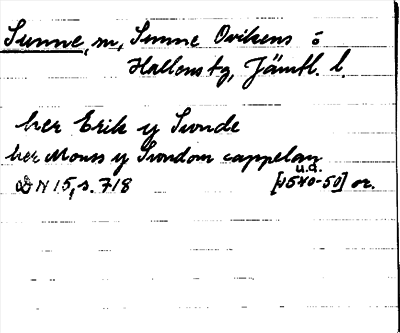 Sunne, m, Sunne Ovikens ö
Hallens tg, Jämtl. l.
her Erik y Swnde
her Monss y Swndom cappelan
u.a.
DN 15, s. 718 [1540-50] or.